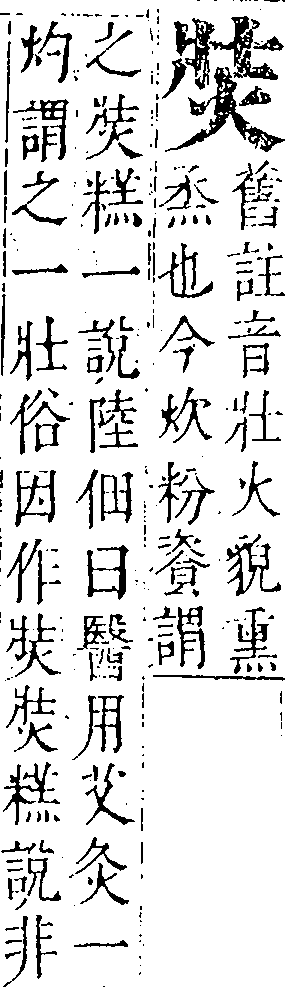 焋
舊註音壯火貌熏
烝也今炊粉餈謂
之焋糕一說陸佃曰醫用艾灸一
灼謂之一壯俗因作焋焋糕說非